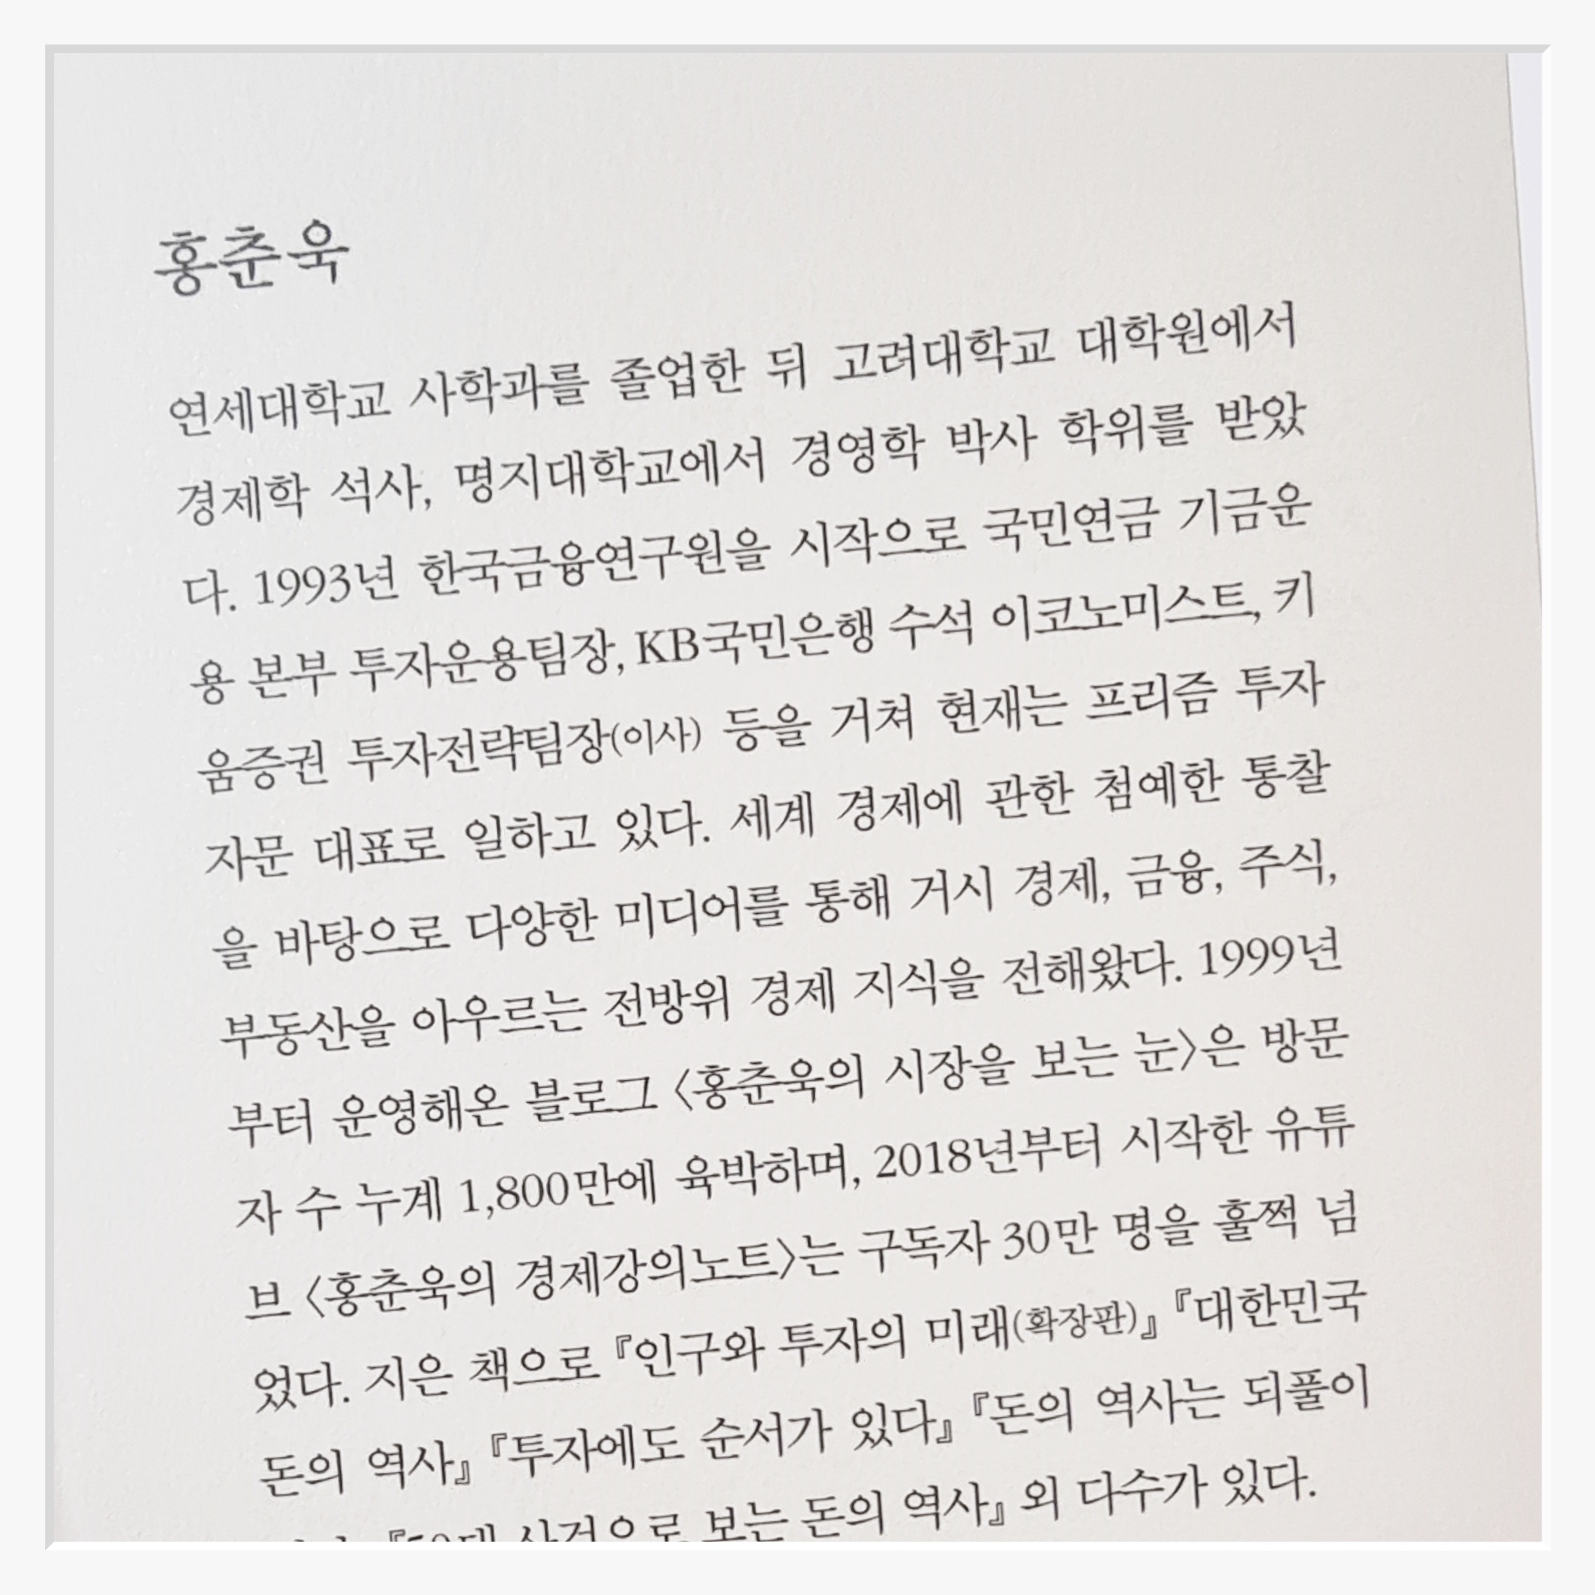 홍춘욱
연세대학교 사학과를 졸업한 뒤 고려대학교 대학원에서
경제학 석사, 명지대학교에서 경영학 박사 학위를 받았
다. 1993년 한국금융연구원을 시작으로 국민연금 기금운
용 본부 투자운용팀장, KB국민은행 수석 이코노미스트, 키
움증권 투자전략팀장(이사) 등을 거쳐 현재는 프리즘 투자
자문 대표로 일하고 있다. 세계 경제에 관한 첨예한 통찰
을 바탕으로 다양한 미디어를 통해 거시 경제, 금융, 주식,
부동산을 아우르는 전방위 경제 지식을 전해왔다. 1999년
부터 운영해온 블로그 〈홍춘욱의 시장을 보는 눈〉은 방문
자 수 누계 1,800만에 육박하며, 2018년부터 시작한 유튜
브 〈홍춘욱의 경제강의노트〉는 구독자 30만 명을 훌쩍 넘
었다. 지은 책으로 『인구와 투자의 미래(확장판)』 『대한민국
돈의 역사』 『투자에도 순서가 있다』 『돈의 역사는 되풀이
『50대 사건으로 보는 돈의 역사』 외 다수가 있다.